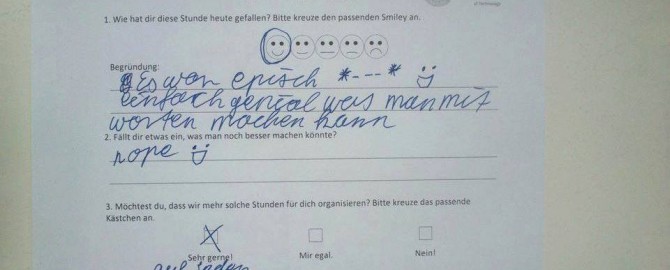 1. Wie hat dir diese Stunde heute gefallen? Bitte kreuze den passenden Smiley an.
Begründung:
Es war episch *---*
einfach genial was man mit
worten machen kann
2. Fällt dir etwas ein, was man noch besser machen könnte?
nope
3. Möchtest du, dass wir mehr solche Stunden für dich organisieren? Bitte kreuze das passende
Kästchen an.
Sehr gerne! Mir egal. Nein!
auf jeden